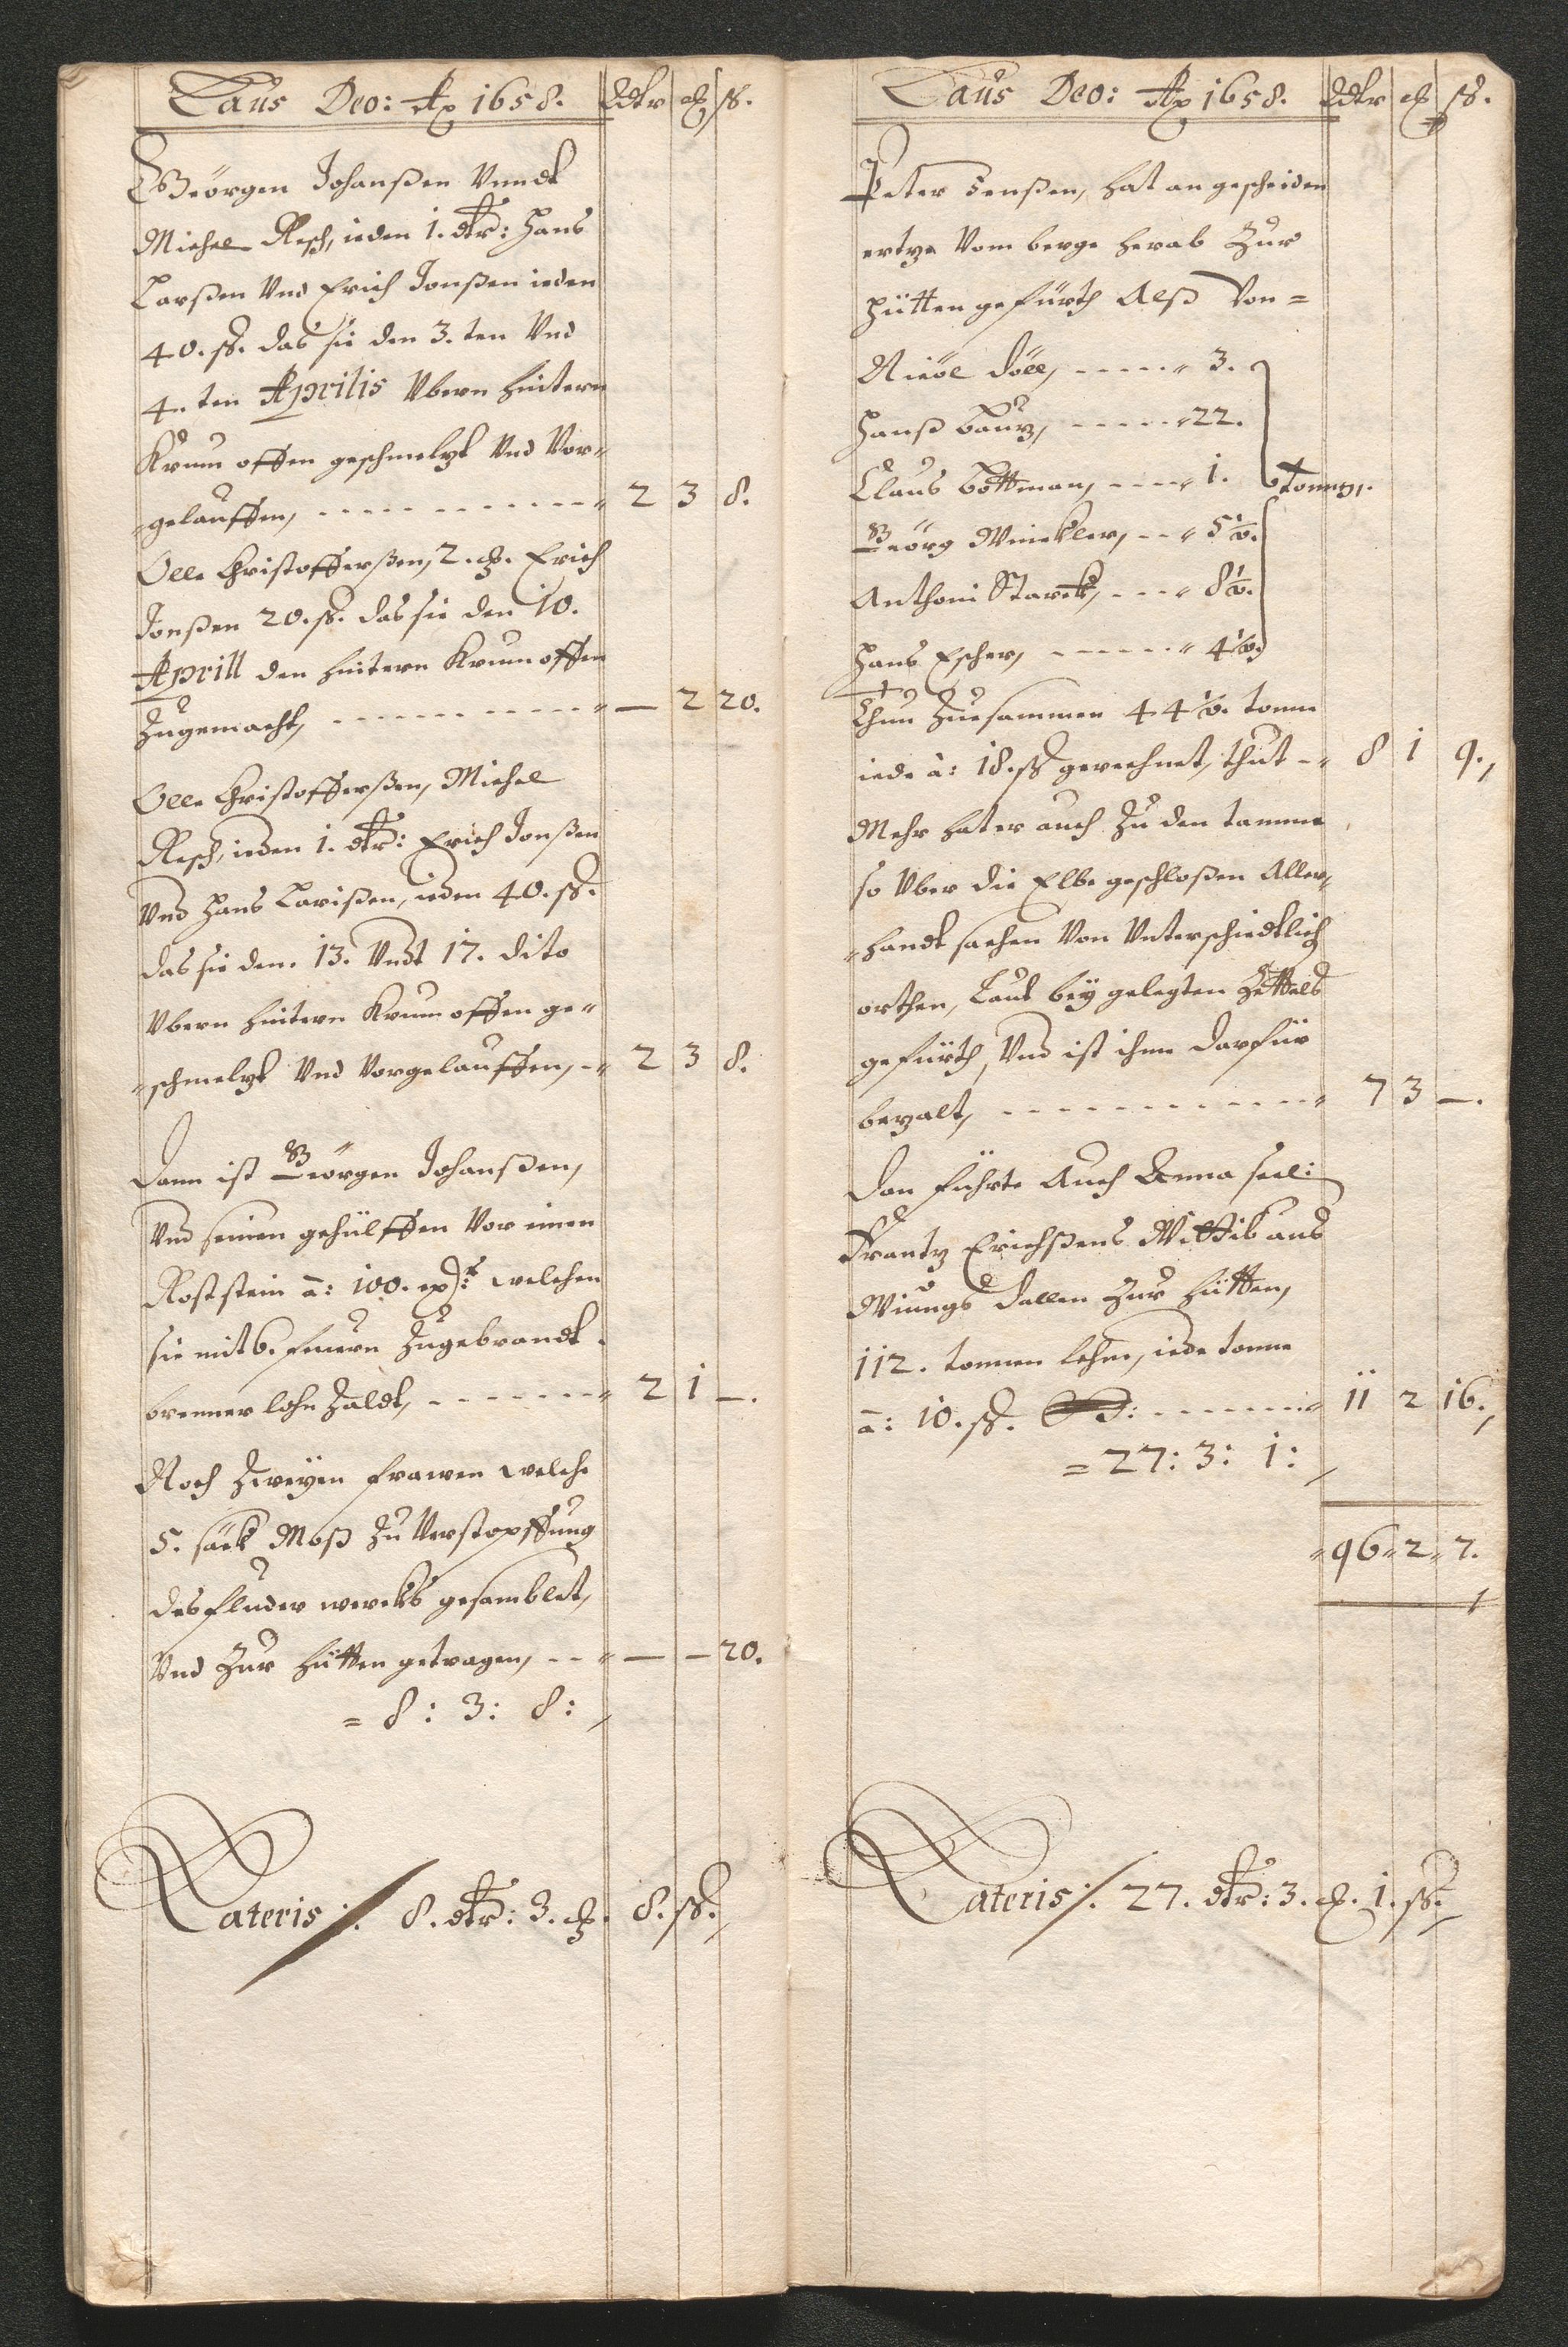 Laus Deo: Aº 1658. Rdtr ꝑ ß.
Geörgen Johanßen Vnndt
Michel Resch, ieden 1. dtr: Hans
Larßen Vnd Erich Jonßen ieden
40. ß. das sie den 3.ten Vnd
4.ten Aprilis Vbern hintern
Krum offen geschmeltzt Vnd Vor-
gelauffen, 2 3 8.
Olle Christofferßen, 2. Erich
Jonßen 20. ß. das sie den 10.
Aprill den hintern Krumoffen
Zugemacht, — 2 20.
Olle Christofferßen, Michel
Resch, ieden 1. dtr: Erich Jonßen
Vnd Hans Larißen, ieden 40. ß.
das sie den. 13. Vndt 17. dito
Vbern hintern Krum offen ge-
schmeltzt Vnd Vorgelauffen, 2 3 8.
Dann ist Geörgen Johanßen,
Vnd seinen gehülffen Vor einen
Roststein ā: 100. welchen
sie mit 6. feuern Zugebrandt
brenner lohn Zaldt, 2 1 —.
Noch Zweÿen frawen welche
5. säck Moß Zu Verstopffung
des fluder wercks gesamblet,
Vnd Zur hütten getragen, — — 20.
= 8: 3: 8:
Lateris ⁒ 8. dtr: 3. 8. ß.
Laus Deo: Aº 1658. Rdtr ꝑ ß.
Peter Jenßen, hat an gescheiden
ertze Vom berge herab Zur
hütten gefürth Alß Von =
Nicöl Döll, 3.
Hanß Bautz, 22.
Claus Bottman, 1.
Geörg Winckler, 5½.
Anthoni Starck, 8½.
Hans Escher, 4½.
Tonnen.
Thun Zuesammen 44½. tonne
iede à: 18. ß gerechnet, thut 8 1 9.
Mehr hat er auch Zu den tamme
so Vber die Elbe geschloßen Aller-
handt sachen Von Vnterschiedtlich
orthen, Laut beÿ gelegten Zettels
gefürth, Vnd ist ihme darfür
bezalt, 7 3 —.
Dan führte Auch Anna seel:
Frantz Erichßens Wittib aus
Wiungs Dallen Zur hütten,
112. tonnen lehm, iede tonne
ā: 10. ß. 11 2 16.
= 27: 3: 1:
96 2 7.
Lateris ⁒ 27. dtr: 3. 1. ß.